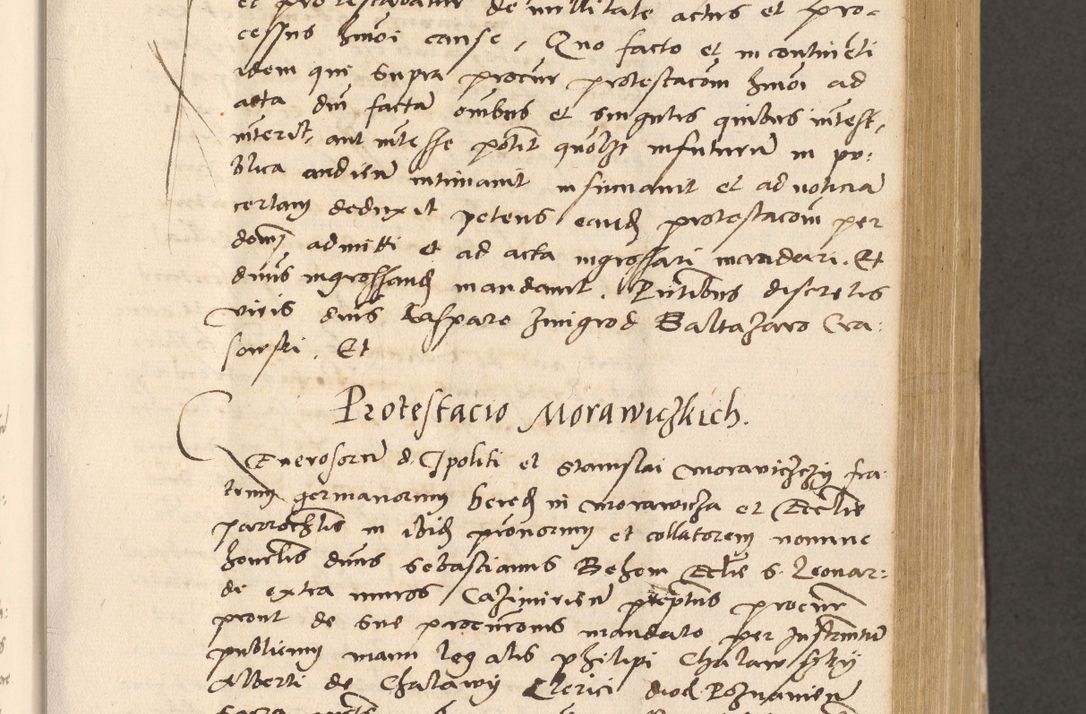 et protestabatur de nullitate actus et pro-
cessus hmoi cause, Quo facto et in continēti
idem qui supra procur protestacoem hmoi ad
acta dni factā omibus et singulis quibus intest,
interit, aut interesse potit quolzt infuturū in pu:
blica audiēn intimavit insinuavit et ad noticiā
certam deduxit petens eand protestacom per
dom admitti et ad acta ingrossari mandari. Et
dnus ingrossand mandavit. Pntibus discretis
viris dnis Caspare Zmigrod Baltazaro Cra:
sowski. Et
Protestacio Morawiczkich.
Generosorū d. Ipoliti et Stanislai Morawiczky fra:
trum germanorum hered in Morawicza et Ecclie
parrochlis in ibid pronorum et collatorem nomine
honorlis dnus Sebastianus Behem Eclie S. Leonar:
di extra muros Cazimirien preptus procur
prout de sue procuronis mandato per Instrmtū
publicum manu legalis Philipi Chalawsky
Alberti de Chalawy Clerici dioc Poznanien